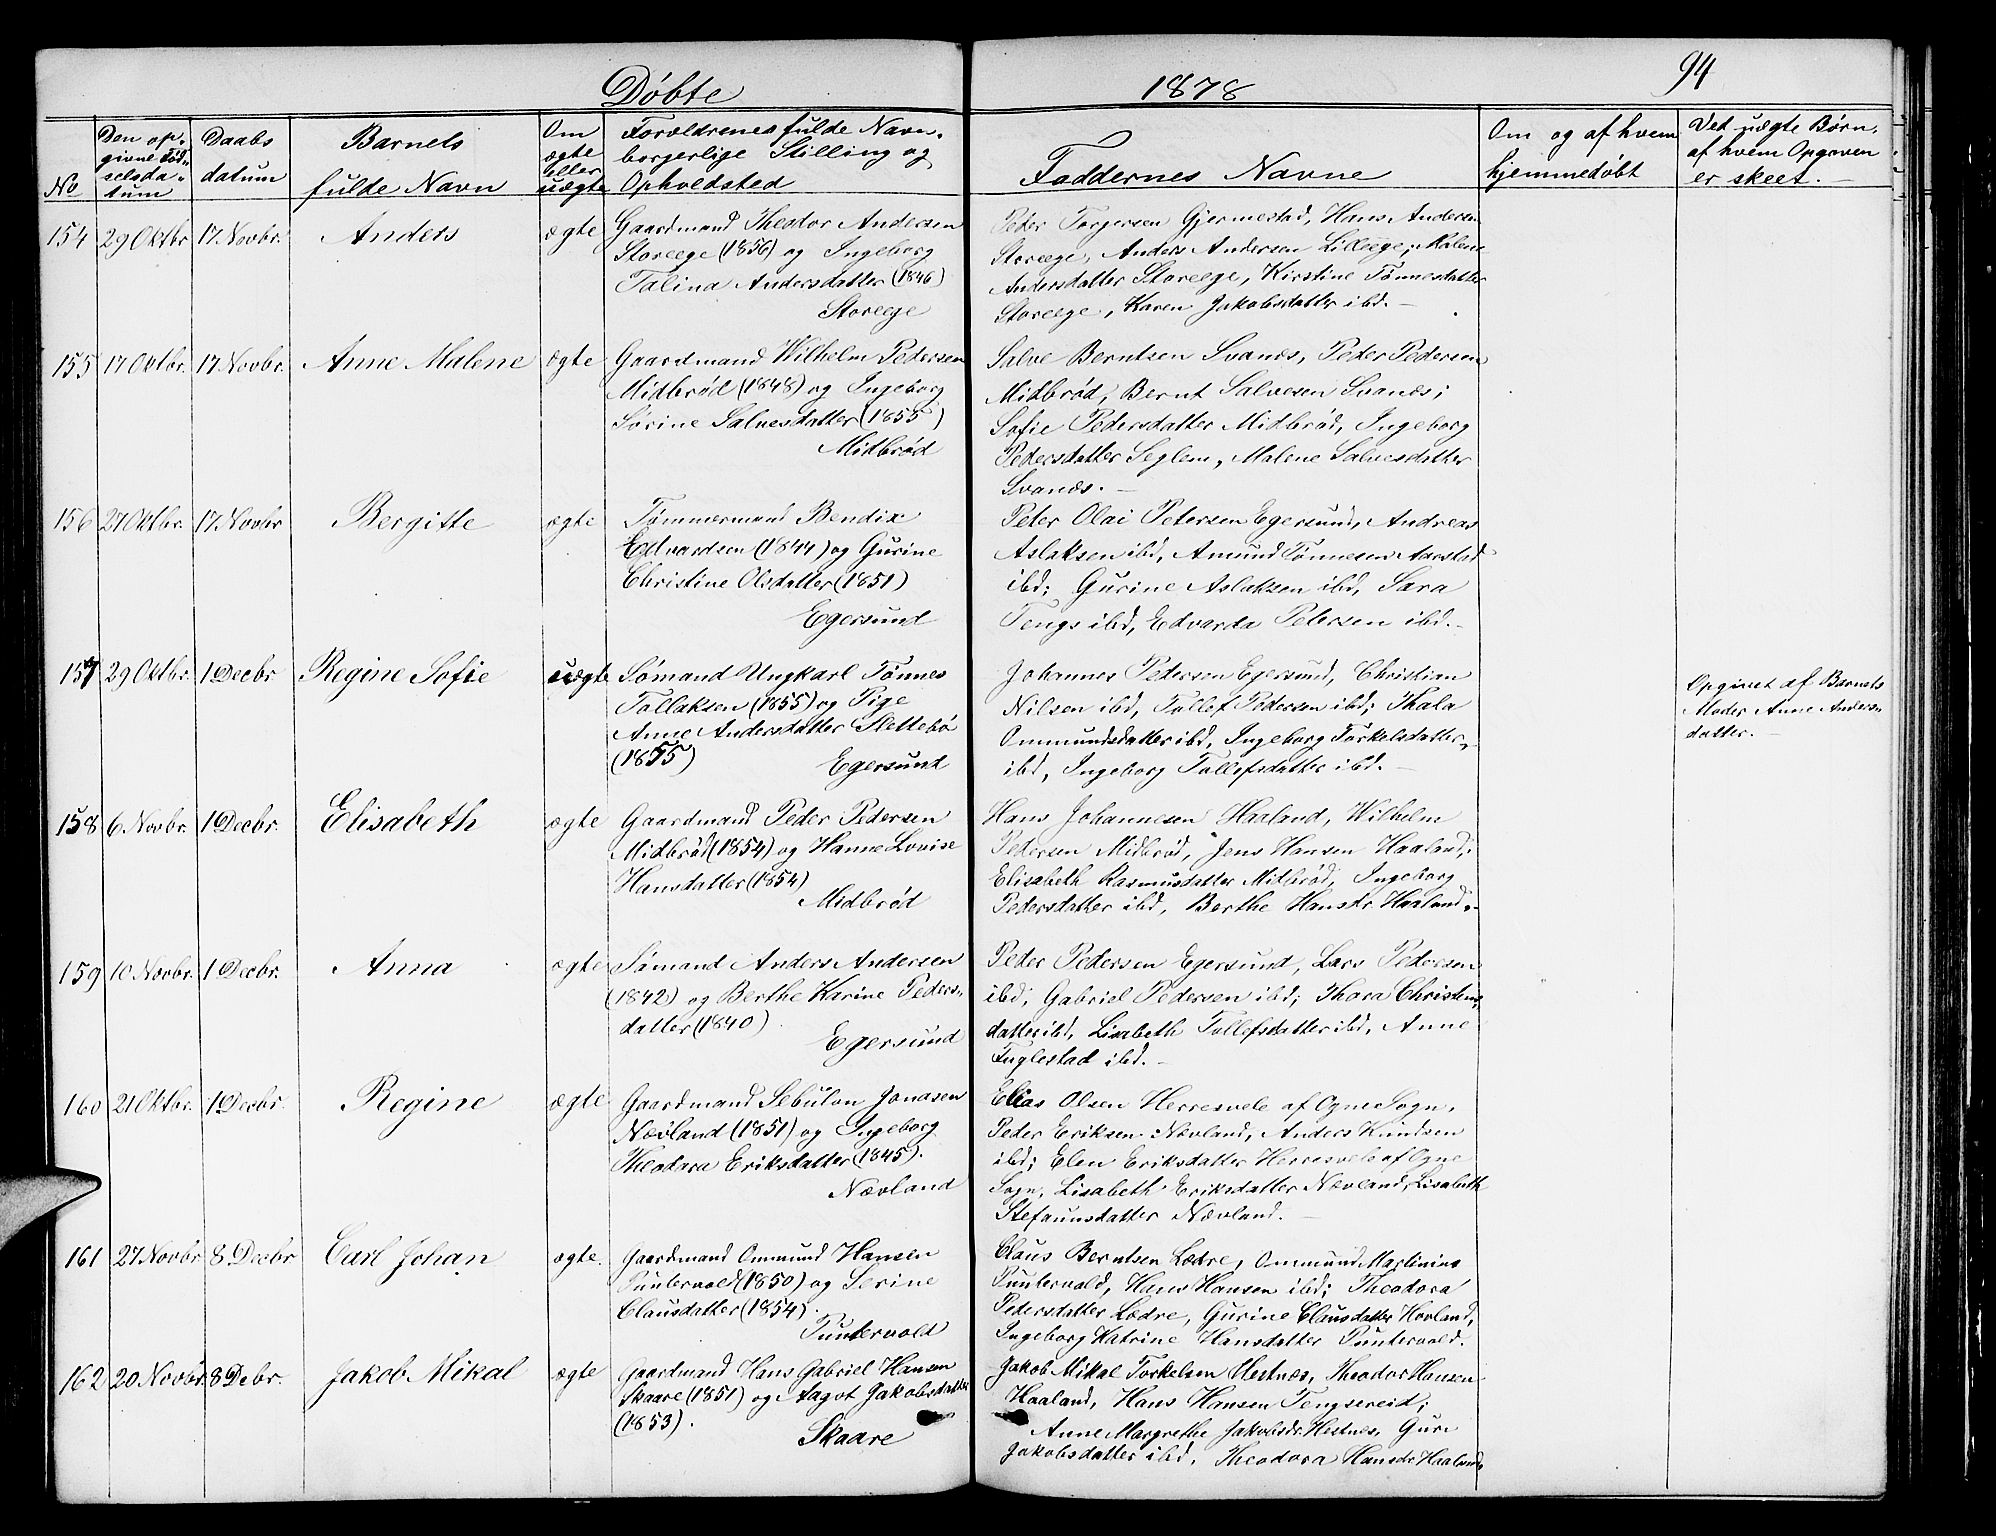 Døbte 1878 94
No
Den op-
givne Fød-
selsda-
tum
Daabs
datum
Barnets
fulde Navn
Om
ægte
eller
uægte
Forældrenes fulde Navn,
borgerlige Stilling og
Opholdsted
Faddernes Navne
Om og af hvem
hjemmedøbt
Ved uægte Børn,
af hvem Opgaven
er skeet.
154 29 Oktbr. 17 Novbr. Anders ægte
Gaardmand Theodor Andersen
Storeege (1856) og Ingeborg
Talina Andersdatter (1846)
Storeege
Peder Torgersen Gjermestad, Hans Andersen
Storeege, Anders Andersen Lilleege; Malene
Andersdatter Storeege, Kirstine Tønnesdatter
Storeege, Karen Jakobsdatter ibd.
155 17 Oktbr. 17 Novbr. Anne Malene ægte
Gaardmand Wilhelm Pedersen
Midbrød (1848) og Ingeborg
Sørine Salvesdatter (1855)
Midbrød
Salve Berntsen Svanæs, Peder Pedersen
Midbrød, Bernt Salvesen Svanæs;
Sofie Pedersdatter Midbrød, Ingeborg
Pedersdatter Seglem, Malene Salvesdatter
Svanæs.
156 27 Oktbr. 17 Novbr Bergitte ægte
Tømmermand Bendix
Edvardsen (1844) og Gurine
Christine Olsdatter (1851)
Egersund
Peter Olai Petersen Egersund, Andreas
Aslaksen ibd, Amund Tønnesen Aarstad
ibd; Gurine Aslaksen ibd, Sara
Tengs ibd, Edvarda Petersen ibd.
157 29 Oktbr. 1 Decbr Regine Sofie uægte
Sømand Ungkarl Tønnes
Tollaksen (1855) og Pige
Anne Andersdatter Slettebø
(1855) Egersund
Johannes Petersen Egersund, Christian
Nilsen ibd, Tollef Pedersen ibd; Thala
Ommundsdatter ibd, Ingeborg Torkelsdatter
ibd, Ingeborg Tollefsdatter ibd.
Opgivet af Barnets
Moder Anne Anders-
datter.
158 6 Novbr. 1 Decbr. Elisabeth ægte
Gaardmand Peder Pedersen
Midbrød (1854) og Hanne Lovise
Hansdatter (1854)
Midbrød
Hans Johannesen Haaland, Wilhelm
Pedersen Midbrød, Jens Hansen Haaland;
Elisabeth Rasmusdatter Midbrød, Ingeborg
Pedersdatter ibd, Berthe Hansdr. Haaland.
159 10 Novbr. 1 Decbr. Anna ægte
Sømand Anders Andersen
(1842) og Berthe Karine Peders-
datter (1840)
Egersund
Peder Pedersen Egersund, Lars Pedersen
ibd, Gabriel Pedersen ibd; Thora Christens-
datter ibd, Lisabeth Tollefsdatter ibd, Anne
Fuglestad ibd.
160 21 Oktbr. 1 Decbr. Regine ægte
Gaardmand Sebulon Jonasen
Nævland (1851) og Ingeborg
Theodora Eriksdatter (1845).
Nævland
Elias Olsen Herresvele af Ogne Sogn,
Peder Eriksen Nævland, Anders Knudsen
ibd; Elen Eriksdatter Herresvele af Ogne
Sogn, Lisabeth Eriksdatter Nævland, Lisabeth
Stefaunsdatter Nævland.
161 27 Novbr. 8 Decbr Carl Johan ægte.
Gaardmand Ommund Hansen
Puntervold (1850) og Serine
Clausdatter (1854).
Puntervold
Claus Berntsen Lædre, Ommund Martinius
Puntervold, Hans Hansen ibd; Theodora
Pedersdatter Lædre, Gurine Clausdatter Hovland,
Ingeborg Katrine Hansdatter Puntervold.
162 20 Novbr. 8 Debr. Jakob Mikal ægte
Gaardmand Hans Gabriel Hansen
Skaare (1851) og Aagot Jakobsdatter
(1853).
Skaare
Jakob Mikal Torkelsen Hestnæs, Theodor Hansen
Haaland, Hans Hansen Tengsereid;
Anne Margrethe Jakobsdr. Hestnes, Guri
Jakobsdatter ibd, Theodora Hansdr Haaland